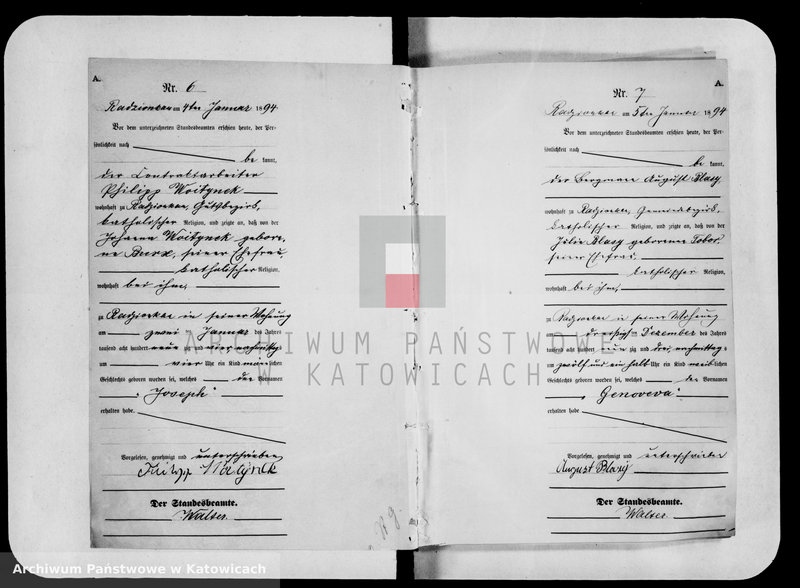 A.
Nr. 6
Radzionkau am 4ten Januar 1894
Vor dem unterzeichneten Standesbeamten erschien heute, der Per-
sönlichkeit nach
be kannt,
der Contraktarbeiter
Philipp Woitynek
wohnhaft zu Radzionkau, Gutsbezirk,
katholischer Religion, und zeigte an, daß von der
Johanna Woitynek gebore-
ne seiner Ehefrau,
katholischer Religion,
wohnhaft bei ihm,
zu Radzionkau in seiner Wohnung
am zwei Januar des Jahres
tausend acht hundert neun zig und vier nachmittags
um vier Uhr ein Kind männlichen
Geschlechts geboren worden sei, welches den Vornamen
„Joseph“
erhalten habe.
Vorgelesen, genehmigt und unterschrieben
Der Standesbeamte.
Walter
A.
Nr. 7
Radzionkau am 5ten Januar 1894
Vor dem unterzeichneten Standesbeamten erschien heute, der Per-
sönlichkeit nach
be kannt,
der Bergmann August Blasy
wohnhaft zu Radzionkau, Gemeindebezirk,
katholischer Religion, und zeigte an, daß von der
Julie Blasy geborenen Tobor,
seiner Ehefrau
katholischer Religion,
wohnhaft bei ihm,
zu Radzionkau in seiner Wohnung
am dreißig ten Dezember des Jahres
tausend acht hundert neun zig und drei, nachmittags
um zwölf und ein halb Uhr ein Kind weiblichen
Geschlechts geboren worden sei, welches den Vornamen
„Genoveva“
erhalten habe.
Vorgelesen, genehmigt und unterschrieben
August Blasy
Der Standesbeamte.
Walter
ARCHIWUM PAŃSTWOWE
W KATOWICACH
Archiwum Państwowe w Katowicach